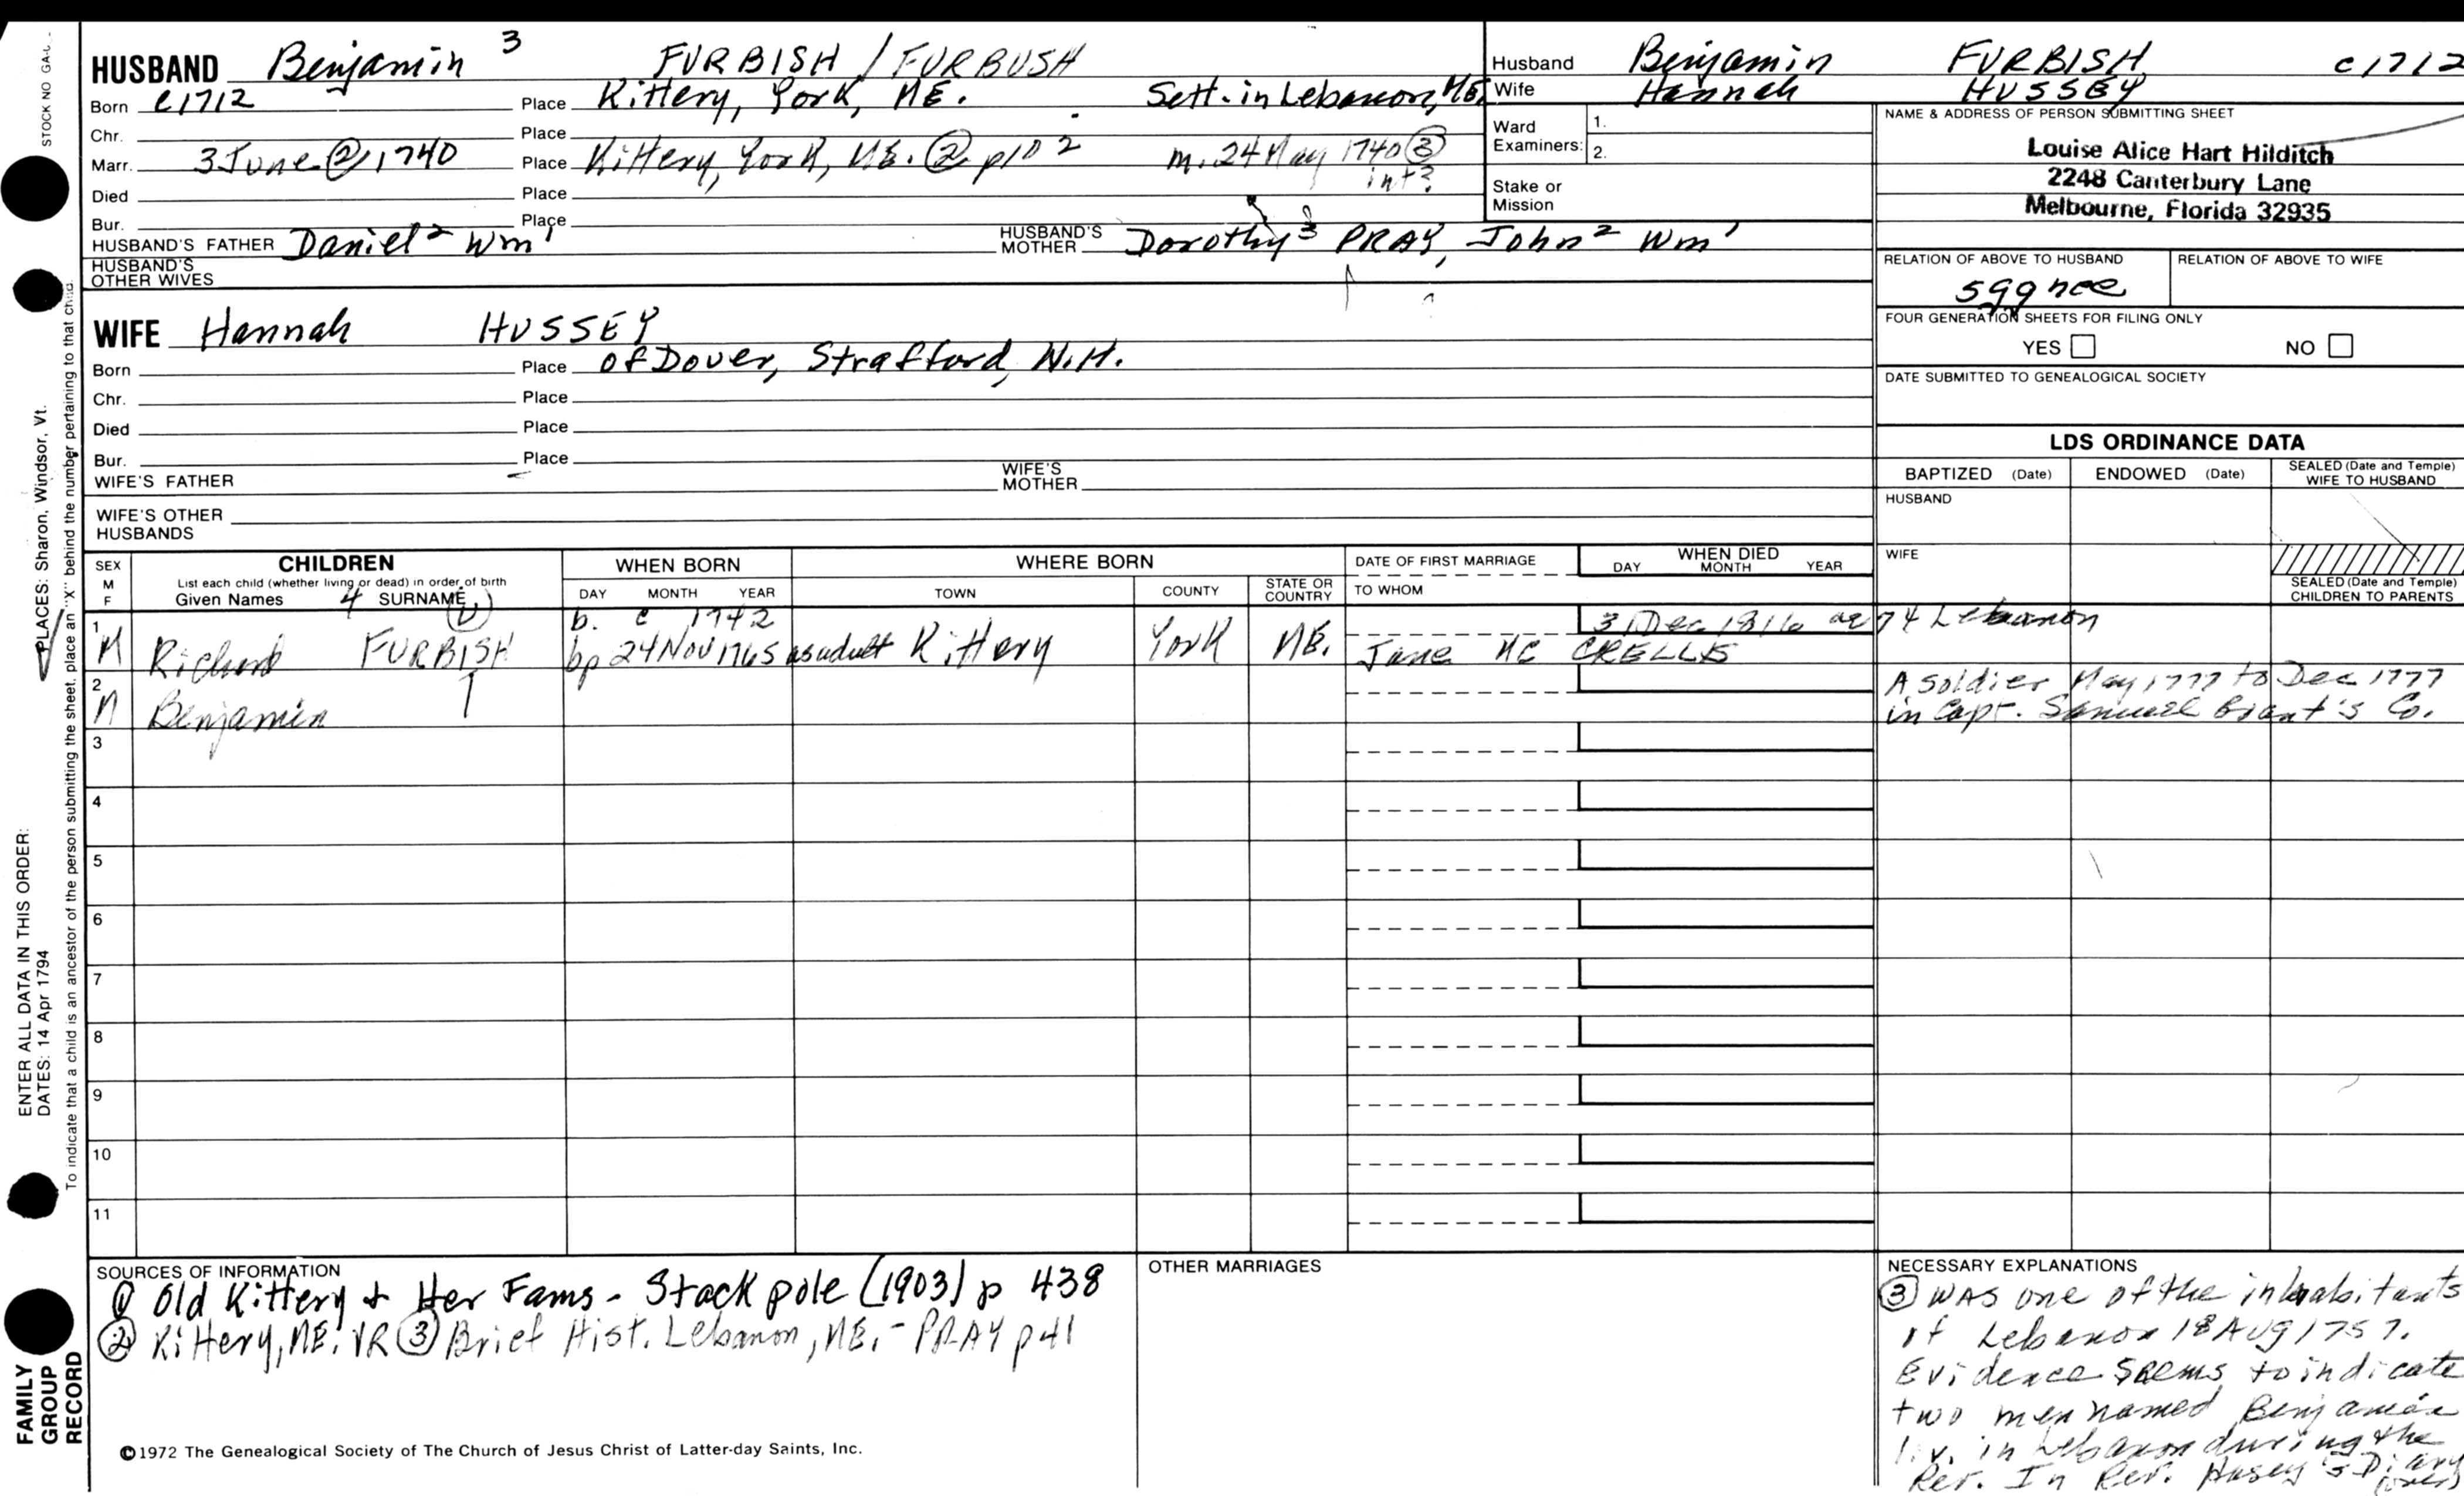 STOCK NO GA-
HUSBAND Benjamin 3 FURBISH / FURBUSH
Born c1712 Place Kittery, York, ME. Sett. in Lebanon, ME.
Chr. Place
Marr. 3 June ② 1740 Place Kittery, York, ME. ② p102 m. 24 May 1740 ③
int?
Died Place
Bur. Place
HUSBAND'S FATHER Daniel 2 Wm 1 HUSBAND'S MOTHER Dorothy 3 PRAY, John 2 Wm 1
HUSBAND'S OTHER WIVES
WIFE Hannah HUSSEY
Born Place of Dover, Strafford, N.H.
Chr. Place
Died Place
Bur. Place
WIFE'S FATHER WIFE'S MOTHER
WIFE'S OTHER HUSBANDS
Husband Benjamin FURBISH c1712
Wife Hannah HUSSEY
Ward Examiners: 1.
2.
Stake or Mission
NAME & ADDRESS OF PERSON SUBMITTING SHEET
Louise Alice Hart Hilditch
2248 Canterbury Lane
Melbourne, Florida 32935
RELATION OF ABOVE TO HUSBAND RELATION OF ABOVE TO WIFE
5gg nce
FOUR GENERATION SHEETS FOR FILING ONLY
YES NO
DATE SUBMITTED TO GENEALOGICAL SOCIETY
LDS ORDINANCE DATA
BAPTIZED (Date) ENDOWED (Date) SEALED (Date and Temple) WIFE TO HUSBAND
HUSBAND
WIFE
SEALED (Date and Temple) CHILDREN TO PARENTS
SEX M F CHILDREN WHEN BORN WHERE BORN DATE OF FIRST MARRIAGE WHEN DIED
List each child (whether living or dead) in order of birth
Given Names 4 SURNAME DAY MONTH YEAR TOWN COUNTY STATE OR COUNTRY TO WHOM DAY MONTH YEAR
1 b. c 1742 3 Dec 1816 ae 74 Lebanon
M Richard FURBISH bp 24 Nov 1765 as adult Kittery York ME. Jane MC CRELLIS
2 A soldier May 1777 to Dec 1777
M Benjamin in Capt. Samuel Grant's Co.
3
4
5
6
7
8
9
10
11
SOURCES OF INFORMATION
① Old Kittery & Her Fams - Stackpole (1903) p 438
② Kittery, ME. VR ③ Brief Hist. Lebanon, ME. - PRAY p41
©1972 The Genealogical Society of The Church of Jesus Christ of Latter-day Saints, Inc.
OTHER MARRIAGES
NECESSARY EXPLANATIONS
③ was one of the inhabitants
of Lebanon 18 Aug 1757.
Evidence seems to indicate
two men named Benjamin
liv. in Lebanon during the
Rev. In Rev. Hasey's Diary
(over)
ENTER ALL DATA IN THIS ORDER:
DATES: 14 Apr 1794
PLACES: Sharon, Windsor, Vt.
To indicate that a child is an ancestor of the person submitting the sheet, place an "X" behind the number pertaining to that child.
FAMILY
GROUP
RECORD